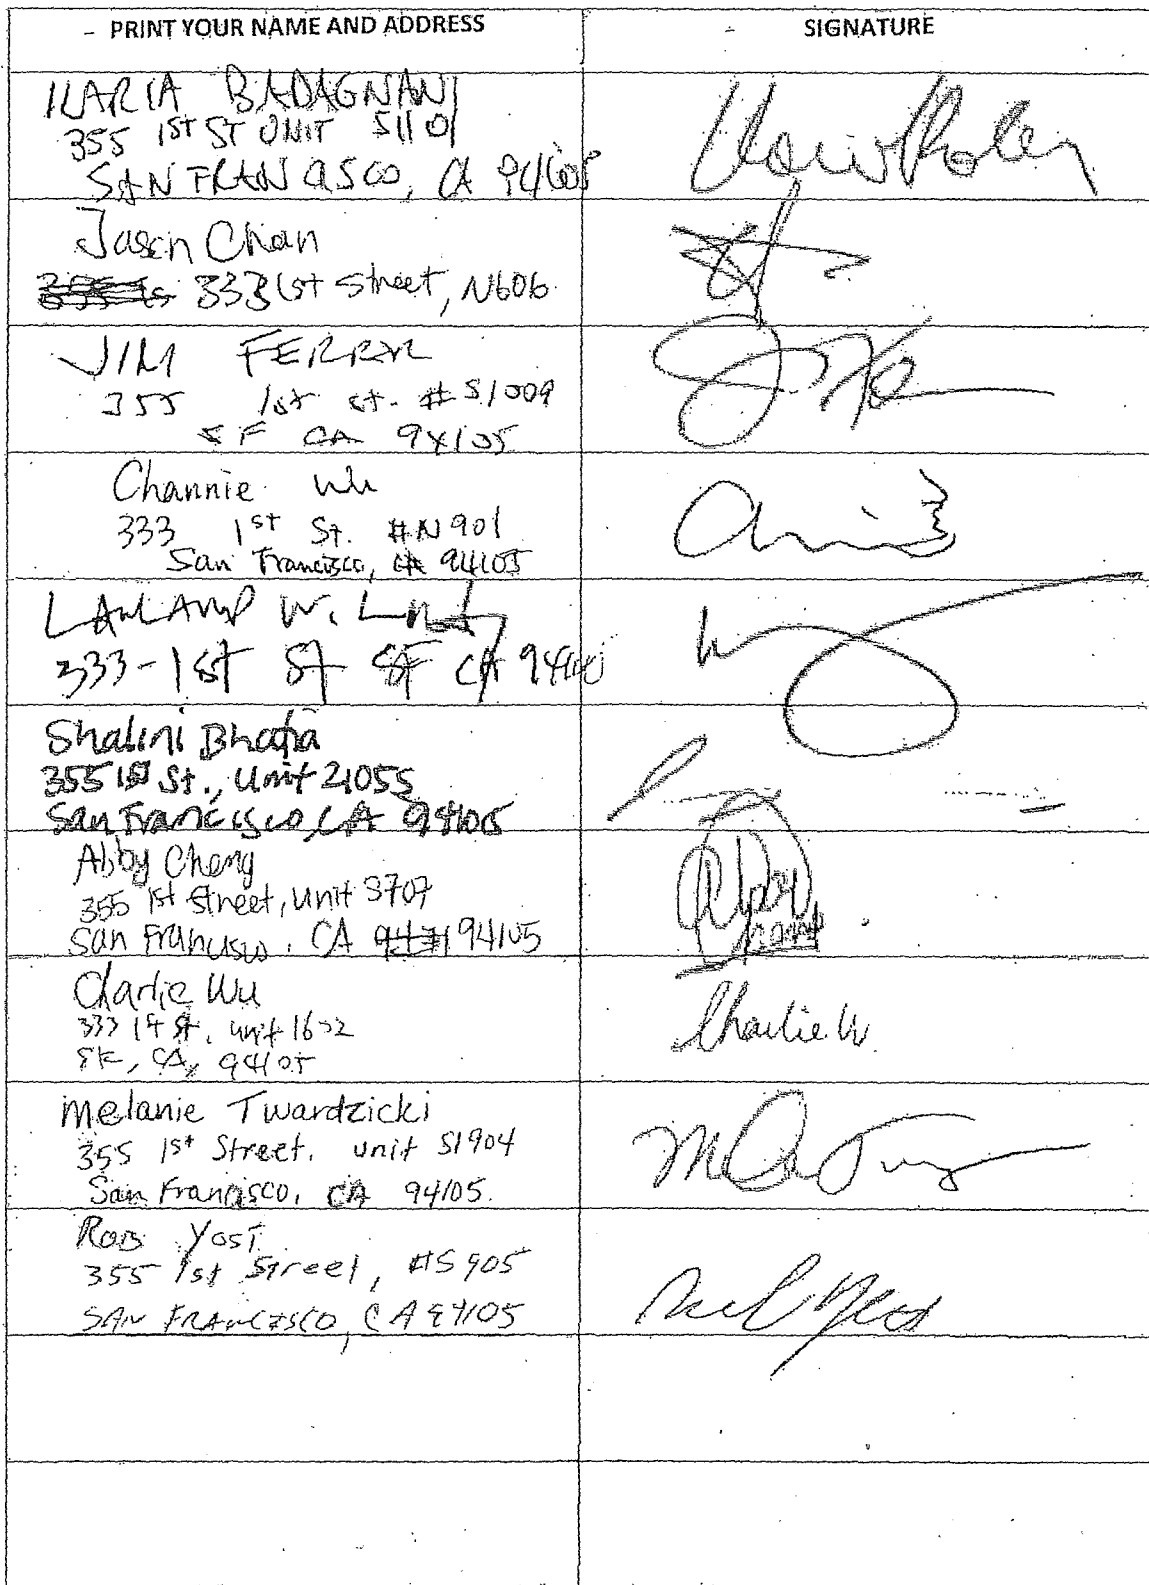 PRINT YOUR NAME AND ADDRESS
SIGNATURE
ILARIA BADAGNANI
355 1ST ST UNIT S1101
SAN FRANCISCO, CA 94105
Jason Chan
333 1st Street, N606
JIM
355 1st st. # S1009
SF CA 94105
Channie Wu
333 1st St. #N901
San Francisco, CA 94105
W.
333-1st St SF CA 94105
Shalini Bhatia
355 1st St., Unit
San Francisco, CA 94105
Abby Cheng
355 1st Street, Unit S707
San Francisco, CA 94105
Abby
Charlie Wu
333 1st St, unit 1602
SF, CA, 94105
Charlie W
Melanie Twardzicki
355 1st Street, unit S1904
San Francisco, CA 94105.
ROB YOST
355 1st Street, #S905
SAN FRANCISCO, CA 94105